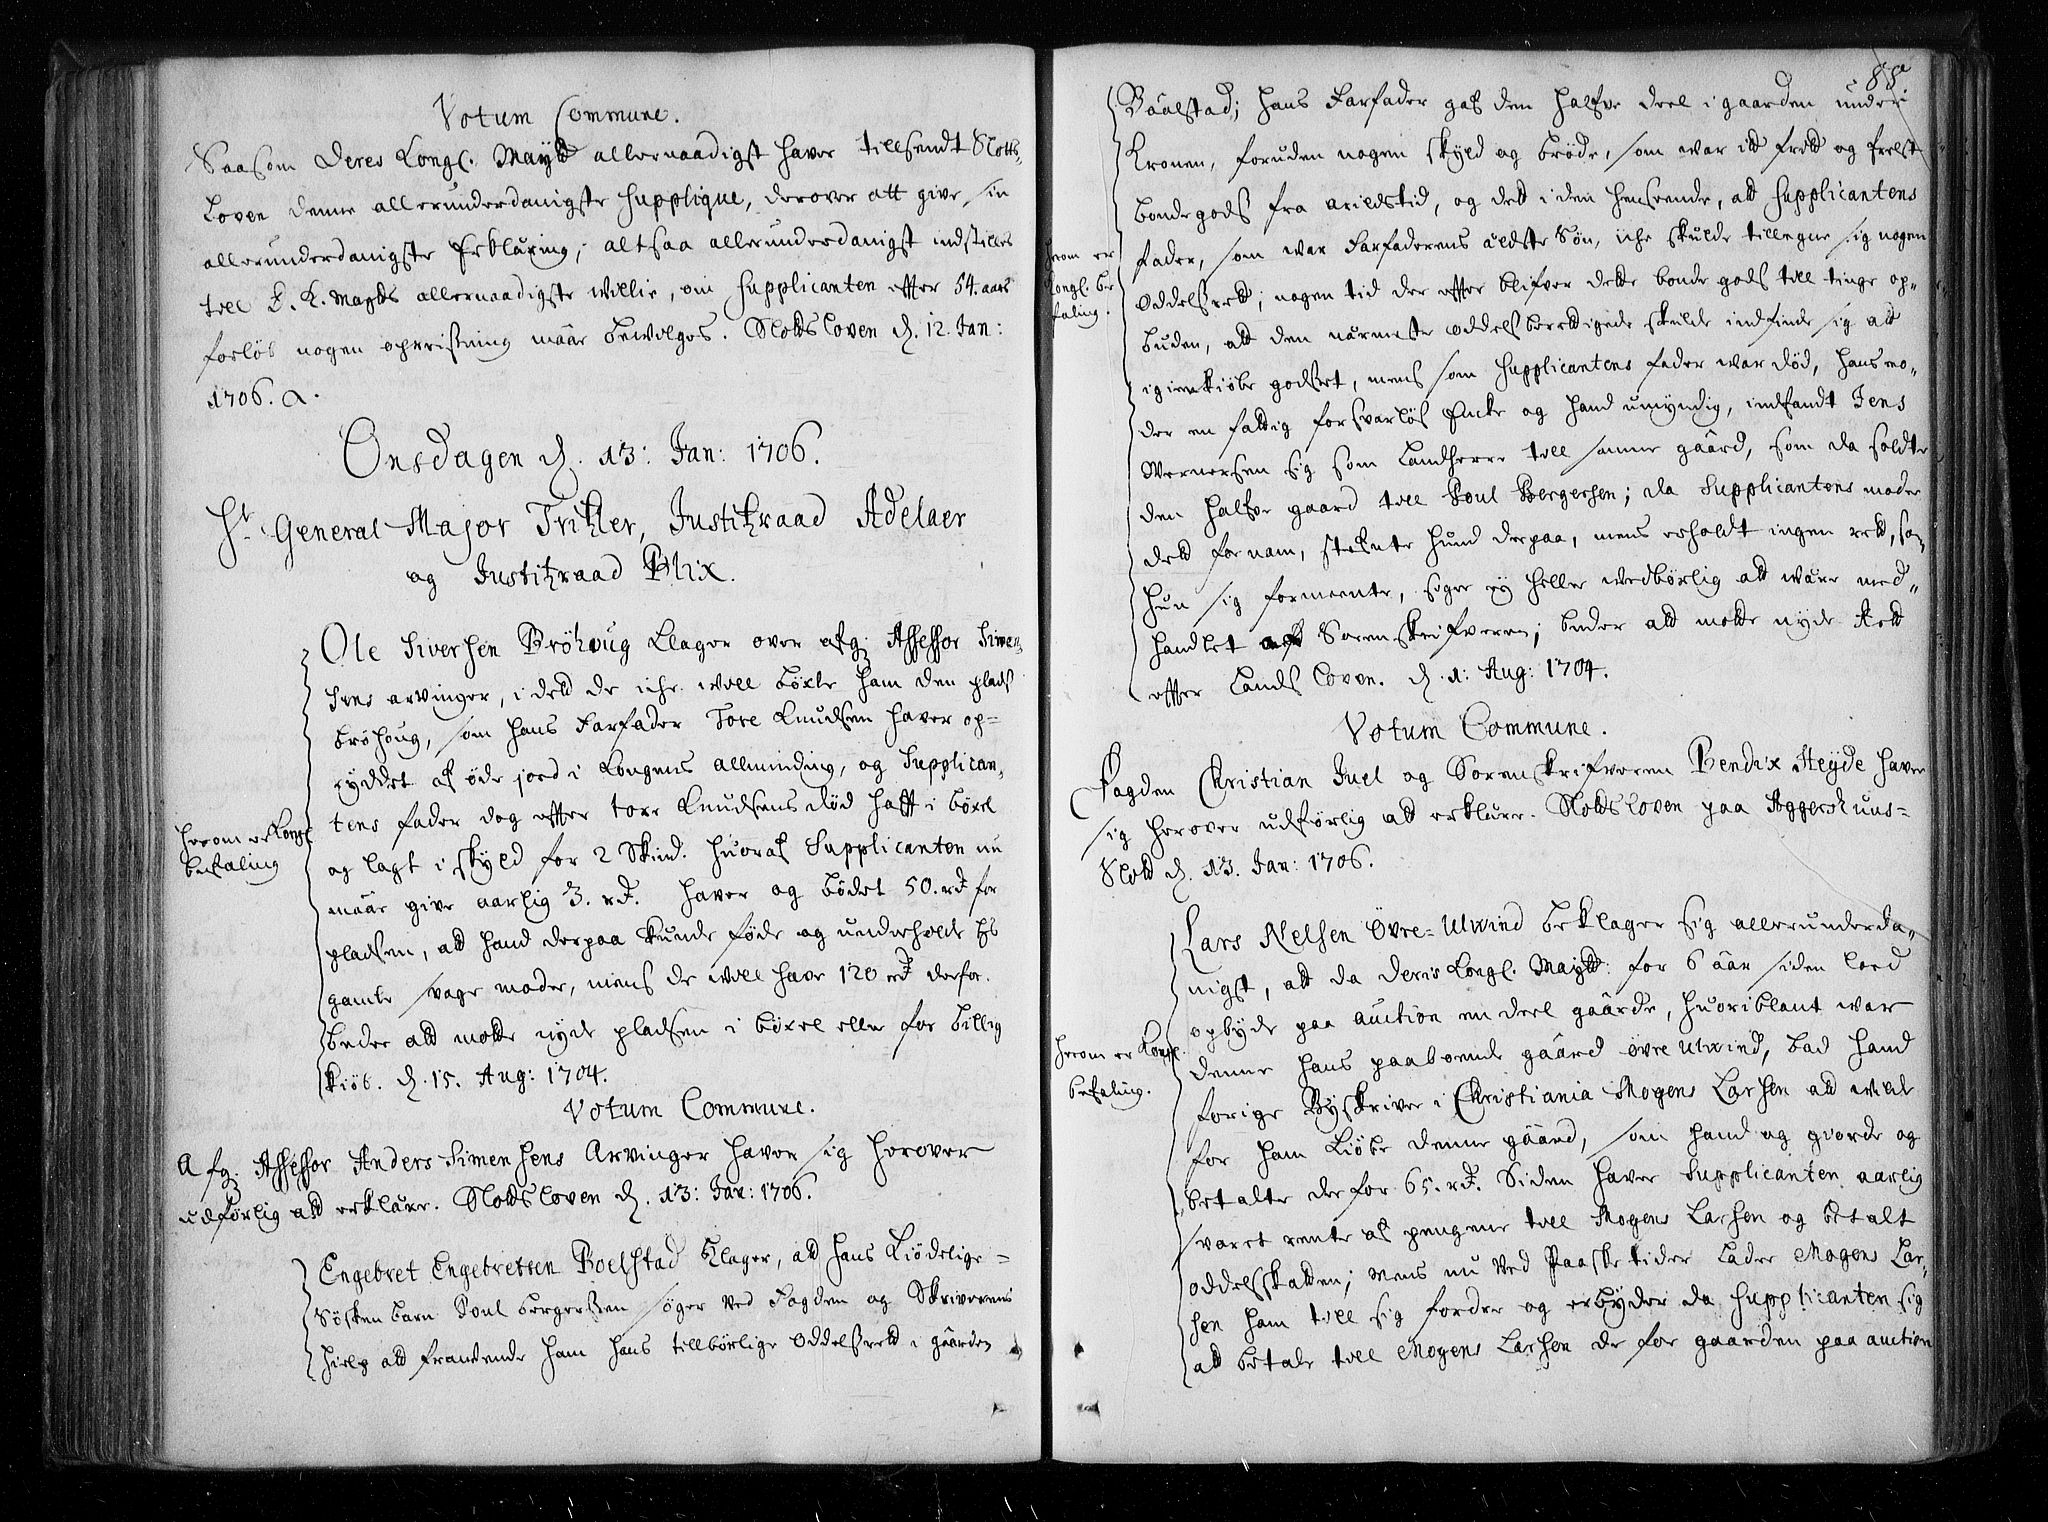 Votum Commune.
Saasom Deres Kongl. Mayts allernaadigst haver tillsendt Slotts-
Loven denne allerunderdanigste Supplique, derover att give sin
allerunderdanigste Erklæring; altsaa allerunderdanigst indstilles
till E. K. Mayts allernaadigste Villie, om Supplicanten effter 54. aars
forløb nogen opreisning maa bevilges. Slotsloven d. 12. Jan:
1706.
Onsdagen d. 13: Jan: 1706.
Hr. General Major Tritzler, Justitzraad Adelaer
og Justitzraad Blix.
Ole Siversen Bröhoug klager over afg: Assessor Simen-
sens arvinger, i det de icke vill böxle ham den plads
bröhoug, som hans Farfader Tore Knudsen haver op-
ryddet af øde jord i Kongens allminding, og Supplican-
tens fader dog effter tore Knudsens død hafft i böxel
og lagt i skyld for 2 Skind. huoraf Supplicanten nu
maae give aarlig 3. rdr. haver og bödet 50. rdr for
pladsen, att hand derpaa kunde föde og underholde hs
gamle svage moder, mens de vill have 120 rdr derfor.
beder att motte nyde pladsen i böxel eller for billig
kiöb. d. 15. Aug: 1704.
herom er Kongl.
befaling
Votum Commune.
Afg. Assessor Anders Simensens Arvinger haver sig herover
udförlig att erklære. Slotsloven d. 13: Jan: 1706.
Engebret Engebretsen Boelstad klager, att hans kiödelige-
Søskenbarn Poul bergersen söger ved Fogden og Skriverens
hielp att fravende ham hans tillbörlige Oddelsrett i gaarden
88
Baalstad; hans Farfader gaf den halfve deel i gaarden under
Kronen, foruden nogen skyld og brøde, som war itt frit og frelst
bondegods fra arildstid, og dett i den henseende, att Supplicantens
fader, som war Farfaderens ældste Søn, iche skulde tillegne sig nogen
Oddelsrett; nogen tid der effter blifver dette bonde gods till tinge op-
buden, att den nærmeste oddelsberettigede skulde indfinde sig att
igienkiöbe godset, mens som Supplicantens fader war död, hans mo-
der en fattig forsvarlös Encke og hand umyndig, indfandt Jens
Wernersen sig som Landherre till samme gaard, som da soldte
den halfve gaard till Poul Bergersen; da Supplicantens moder
dett fornam, stefnte hund derpaa, mens erholdt ingen rett, som
hun sig formeente, siger ey heller wedbörlig att wære med-
handlet af Sorenskrifveren; beder att motte nyde Rett
effter Lands Loven. d. 1: Aug: 1704.
herom er
Kongl. be
faling.
Votum Commune.
Fogden Christian Juel og Sorenskrifveren Bendix Heyde haver
sig herover udförlig att erklære. Slotsloven paa Aggershuus-
Slott d. 13. Jan: 1706.
Lars Nelsen Övre-Ulwind beklager sig allerunderda-
nigst, att da Deris Kongl. Mayts: for 6 aar siden loed
opbyde paa auction en deel gaarde, huoriblant war
denne hans paaboende gaard övre Ulwind, bad hand
forige Byskriver i Christiania Mogens Larsen att wille
for ham kiöbe denne gaard, som hand og giorde og
betalte der for 65. rdr. Siden haver Supplicanten aarlig
svaret rente af pengene till Mogens Larsen og betalt
oddelsskatten; mens nu ved Paaske tider lader Mogens Lar-
sen ham till sig fordre og erbyder da Supplicanten sig
att betale till Mogens Larsen de for gaarden paa auction
herom er Kongl.
befaling.